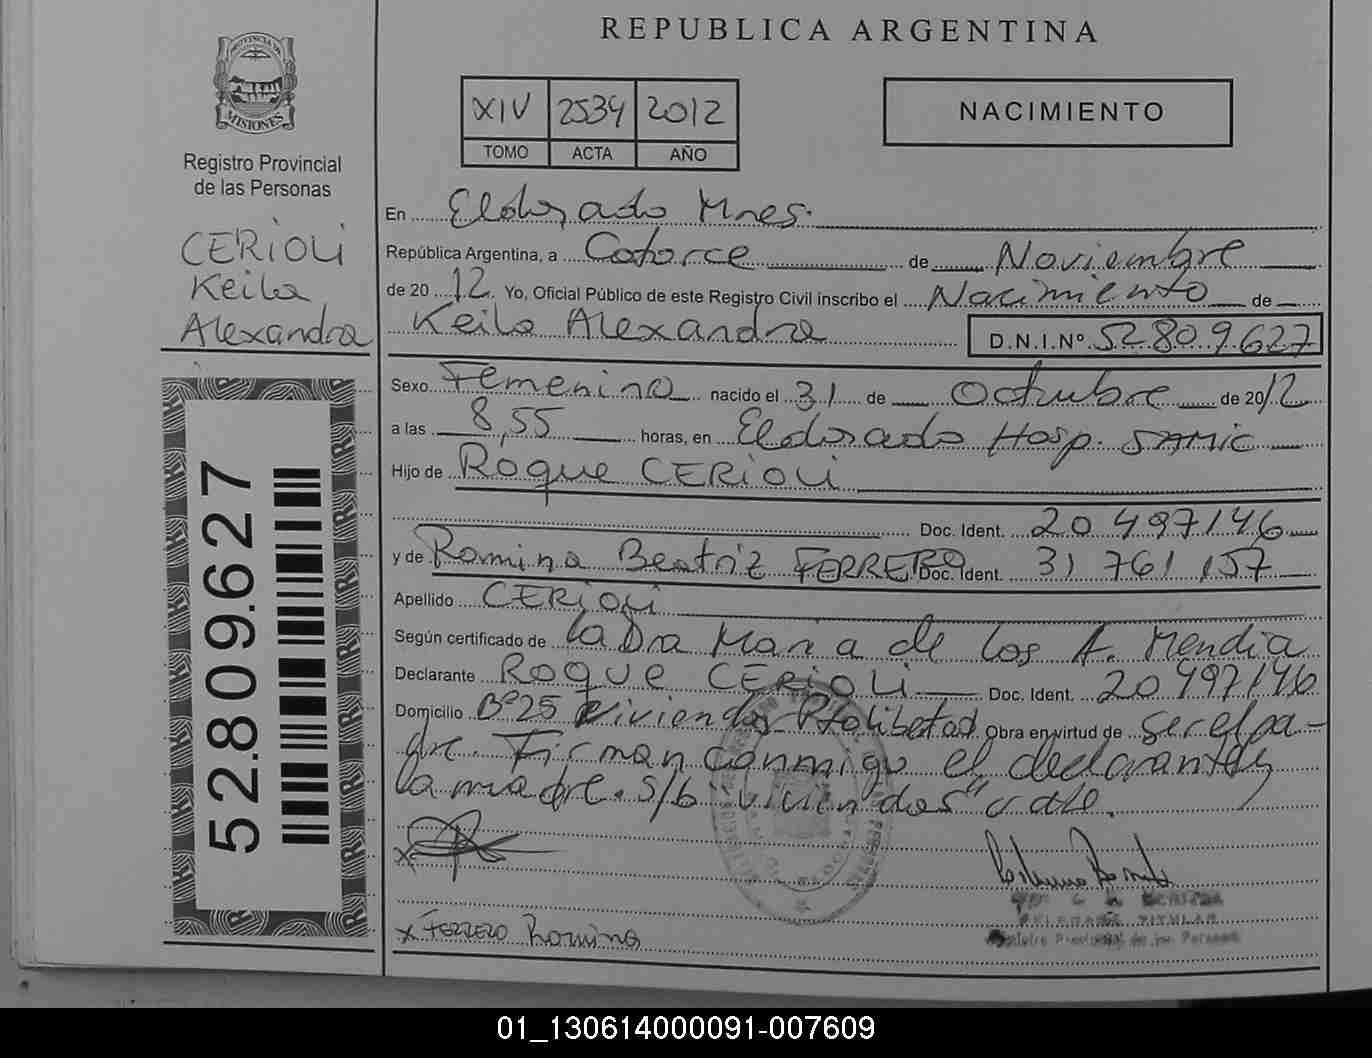 REPUBLICA ARGENTINA
PROVINCIA DE
MISIONES
Registro Provincial
de las Personas
CERIOLI
Keila
Alexandra
52.809.627
XIV 2539 2012
TOMO ACTA AÑO
NACIMIENTO
En Eldorado Mnes.
República Argentina, a Catorce de Noviembre
de 20 12 Yo, Oficial Público de este Registro Civil inscribo el Nacimiento de
Keila Alexandra D.N.I.Nº 52.809.627
Sexo Femenino nacido el 31 de Octubre de 2012
a las 8,55 horas, en Eldorado Hosp. SAMIC
Hijo de Roque CERIOLI
Doc. Ident. 20 497146
y de Romina Beatriz FERRERO Doc. Ident. 31 761 157
Apellido CERIOLI
Según certificado de La Dra Maria de los A. Mendia
Declarante ROQUE CERIOLI Doc. Ident. 20 497146
Domicilio Bº 25 viviendas Ptolibertad Obra en virtud de ser el pa-
dre. Firman conmigo el declarante y
la madre. S/b "viviendas" vale.
x
x FERRERO Romina
Registro Provincial de las Personas
01_130614000091-007609